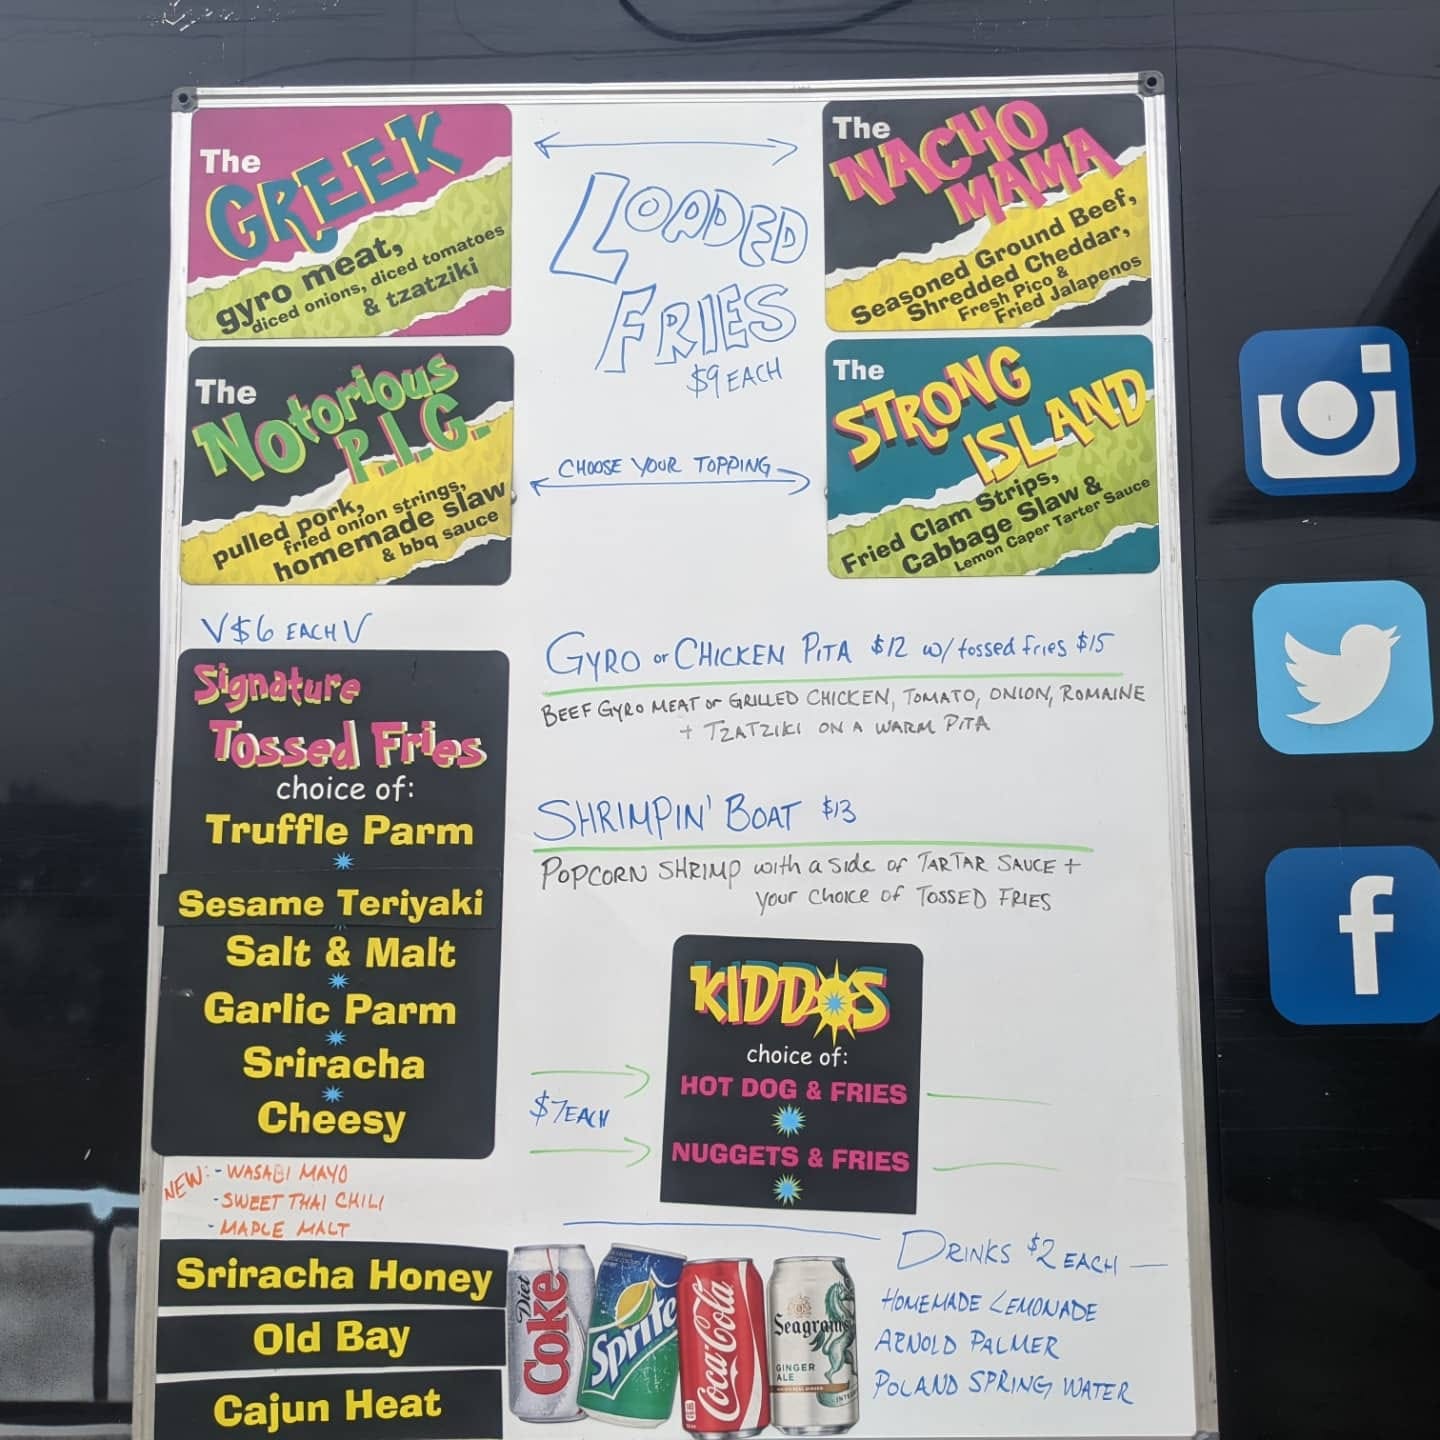 The
GREEK
gyro meat,
diced onions, diced tomatoes
& tzatziki
LOADED
FRIES
$9 EACH
The
NACHO
MAMA
Seasoned Ground Beef,
Shredded Cheddar,
Fresh Pico, &
Fried Jalapenos
The
Notorious
P.I.G.
pulled pork,
fried onion strings,
homemade slaw
& bbq sauce
CHOOSE YOUR TOPPING
The
STRONG
ISLAND
Fried Clam Strips,
Cabbage Slaw &
Lemon Caper Tarter Sauce
V $6 EACH V
Signature
Tossed Fries
choice of:
Truffle Parm
Sesame Teriyaki
Salt & Malt
Garlic Parm
Sriracha
Cheesy
NEW:
- WASABI MAYO
- SWEET THAI CHILI
- MAPLE MALT
Sriracha Honey
Old Bay
Cajun Heat
GYRO or CHICKEN PITA $12 w/ tossed fries $15
BEEF GYRO MEAT or GRILLED CHICKEN, TOMATO, ONION, ROMAINE
+ TZATZIKI ON A WARM PITA
SHRIMPIN' BOAT $13
POPCORN SHRIMP with a side of TARTAR SAUCE +
your choice of TOSSED FRIES
KIDDOS
choice of:
HOT DOG & FRIES
NUGGETS & FRIES
$7 EACH
DRINKS $2 EACH
HOMEMADE LEMONADE
ARNOLD PALMER
POLAND SPRING WATER
Diet
Coke
Sprite
Coca-Cola
Seagram's
GINGER
ALE
f